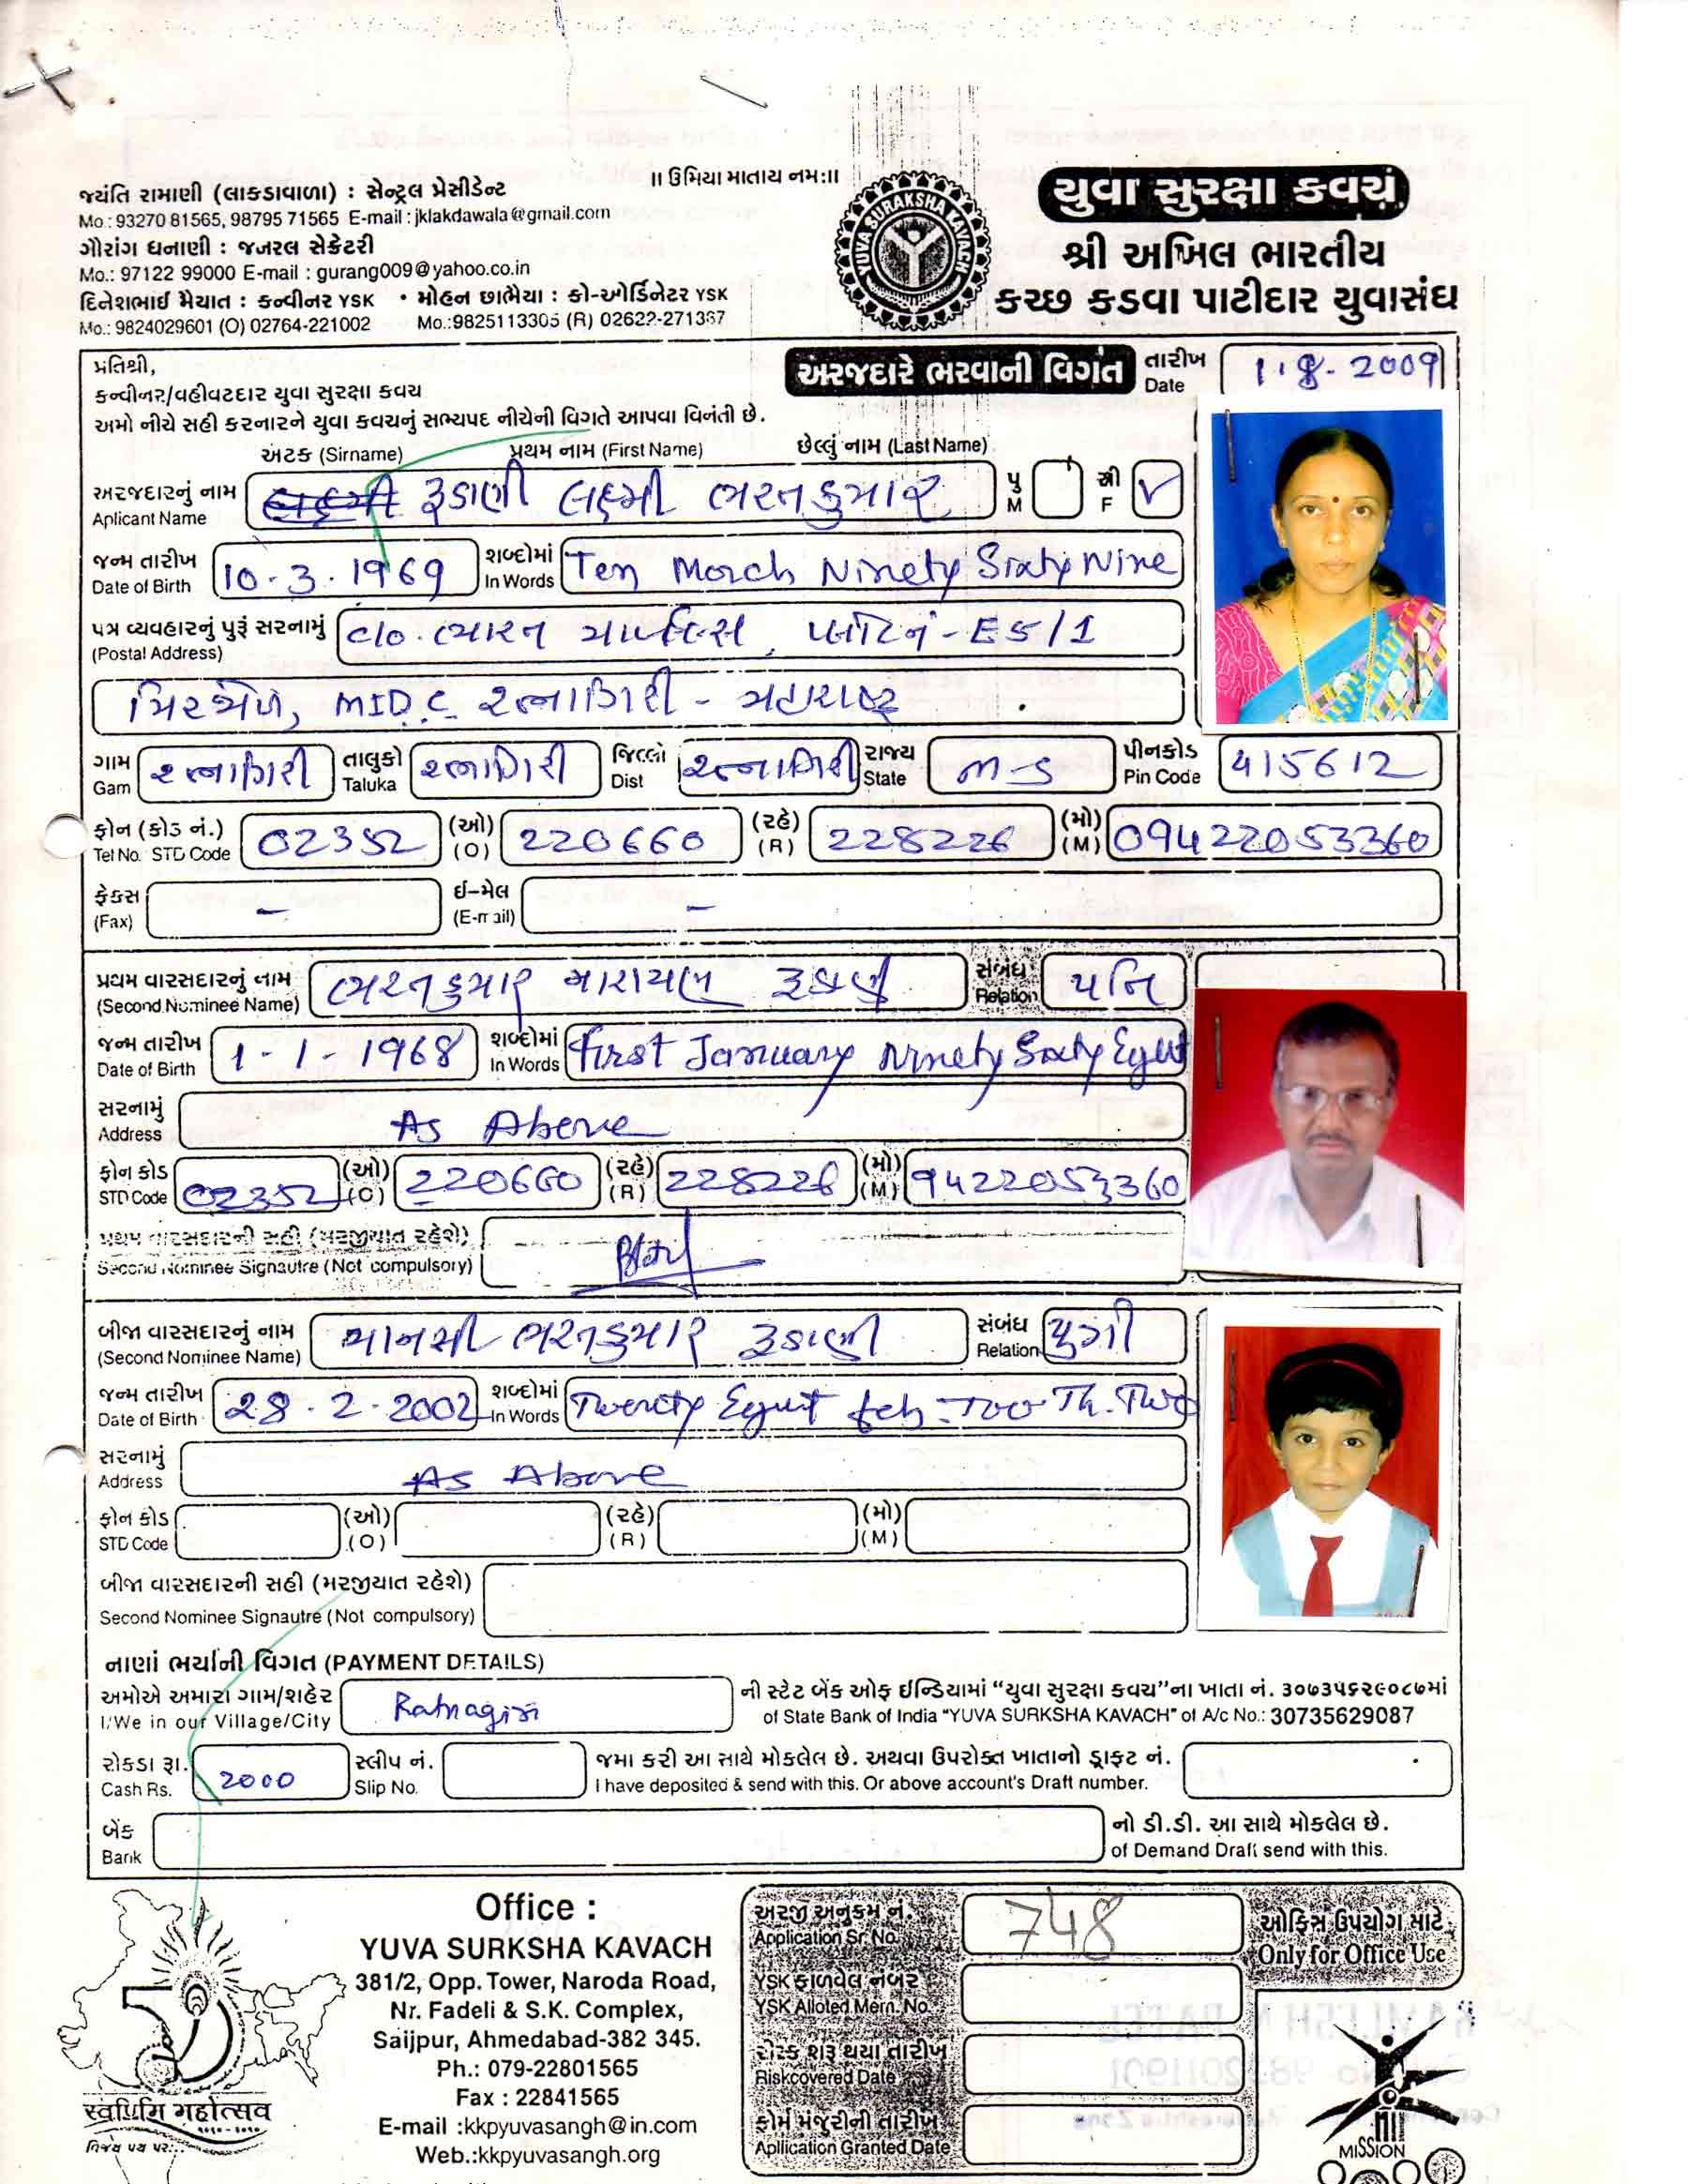 ॥ ઉમિયા માતાય નમ:॥
જયંતિ રામાણી (લાકડાવાળા) : સેન્ટ્રલ પ્રેસીડેન્ટ
Mo.: 93270 81565, 98795 71565 E-mail : jklakdawala@gmail.com
ગૌરાંગ ધનાણી : જનરલ સેક્રેટરી
Mo.: 97122 99000 E-mail : gurang009@yahoo.co.in
દિનેશભાઈ મૈયાત : કન્વીનર YSK • મોહન છાભૈયા : કો-ઓર્ડિનેટર YSK
Mo.: 9824029601 (O) 02764-221002 Mo.:9825113305 (R) 02622-271367
YUVA SURAKSHA KAVACH
યુવા સુરક્ષા કવચ
શ્રી અખિલ ભારતીય
કચ્છ કડવા પાટીદાર યુવાસંઘ
પ્રતિશ્રી,
કન્વીનર/વહીવટદાર યુવા સુરક્ષા કવચ
અમો નીચે સહી કરનારને યુવા કવચનું સભ્યપદ નીચેની વિગતે આપવા વિનંતી છે.
અરજદારે ભરવાની વિગત તારીખ Date 1.8.2009
અટક (Sirname) પ્રથમ નામ (First Name) છેલ્લું નામ (Last Name)
અરજદારનું નામ Aplicant Name રૂડાણી લક્ષ્મી ભરતકુમાર પુ M સ્રી F ✓
જન્મ તારીખ Date of Birth 10-3-1969 શબ્દોમાં In Words Ten March Ninety Sixty Nine
પત્ર વ્યવહારનું પુરૂં સરનામું (Postal Address) c/o. ભારત માર્બલ્સ, પ્લોટ નં - E 5/1
મિરજોળે, MIDC રત્નાગિરી - મહારાષ્ટ્ર
ગામ Gam રત્નાગિરી તાલુકો Taluka રત્નાગિરી જિલ્લો Dist રત્નાગિરી રાજ્ય State M-S પીનકોડ Pin Code 415612
ફોન (કોડ નં.) Tel No. STD Code 02352 (ઓ) (O) 220660 (રહે) (R) 228226 (મો) (M) 09422053360
ફેકસ (Fax) - ઈ-મેલ (E-mail) -
પ્રથમ વારસદારનું નામ (Second Nominee Name) ભરતકુમાર નારાયણ રૂડાણી સંબંધ Relation પતિ
જન્મ તારીખ Date of Birth 1-1-1968 શબ્દોમાં In Words First January Ninety Sixty Eyut
સરનામું Address As Above
ફોન કોડ STD Code 02352 (ઓ) (O) 220660 (રહે) (R) 228226 (મો) (M) 9422053360
પ્રથમ વારસદારની સહી (મરજીયાત રહેશે)
Second Nominee Signautre (Not compulsory)
બીજા વારસદારનું નામ (Second Nominee Name) માનસી ભરતકુમાર રૂડાણી સંબંધ Relation પુત્રી
જન્મ તારીખ Date of Birth 28-2-2002 શબ્દોમાં In Words Twenty Eyut feb-Too Th. Two
સરનામું Address As Above
ફોન કોડ STD Code (ઓ) (O) (રહે) (R) (મો) (M)
બીજા વારસદારની સહી (મરજીયાત રહેશે)
Second Nominee Signautre (Not compulsory)
નાણાં ભર્યાની વિગત (PAYMENT DETAILS)
અમોએ અમારા ગામ/શહેર I/We in our Village/City Ratnagiri
ની સ્ટેટ બેંક ઓફ ઈન્ડિયામાં “યુવા સુરક્ષા કવચ”ના ખાતા નં. ૩૦૭૩૫૬૨૯૦૮૭માં
of State Bank of India "YUVA SURKSHA KAVACH" of A/c No.: 30735629087
રોકડા રૂા. Cash Rs. 2000 સ્લીપ નં. Slip No.
જમા કરી આ સાથે મોકલેલ છે. અથવા ઉપરોક્ત ખાતાનો ડ્રાફટ નં.
I have deposited & send with this. Or above account's Draft number.
બેંક Bank નો ડી.ડી. આ સાથે મોકલેલ છે.
of Demand Draft send with this.
Office :
YUVA SURKSHA KAVACH
381/2, Opp. Tower, Naroda Road,
Nr. Fadeli & S.K. Complex,
Saijpur, Ahmedabad-382 345.
Ph.: 079-22801565
Fax : 22841565
E-mail :kkpyuvasangh@in.com
Web.:kkpyuvasangh.org
અરજી અનુક્રમ નં. Application Sr. No. 748
ઓફિસ ઉપયોગ માટે
Only for Office Use
YSK ફાળવેલ નંબર
YSK Alloted Mem. No.
રીસ્ક શરૂ થયા તારીખ
Riskcovered Date
ફોર્મ મંજુરીની તારીખ
Apllication Granted Date
સ્વર્ણિમ મહોત્સવ
MISSION